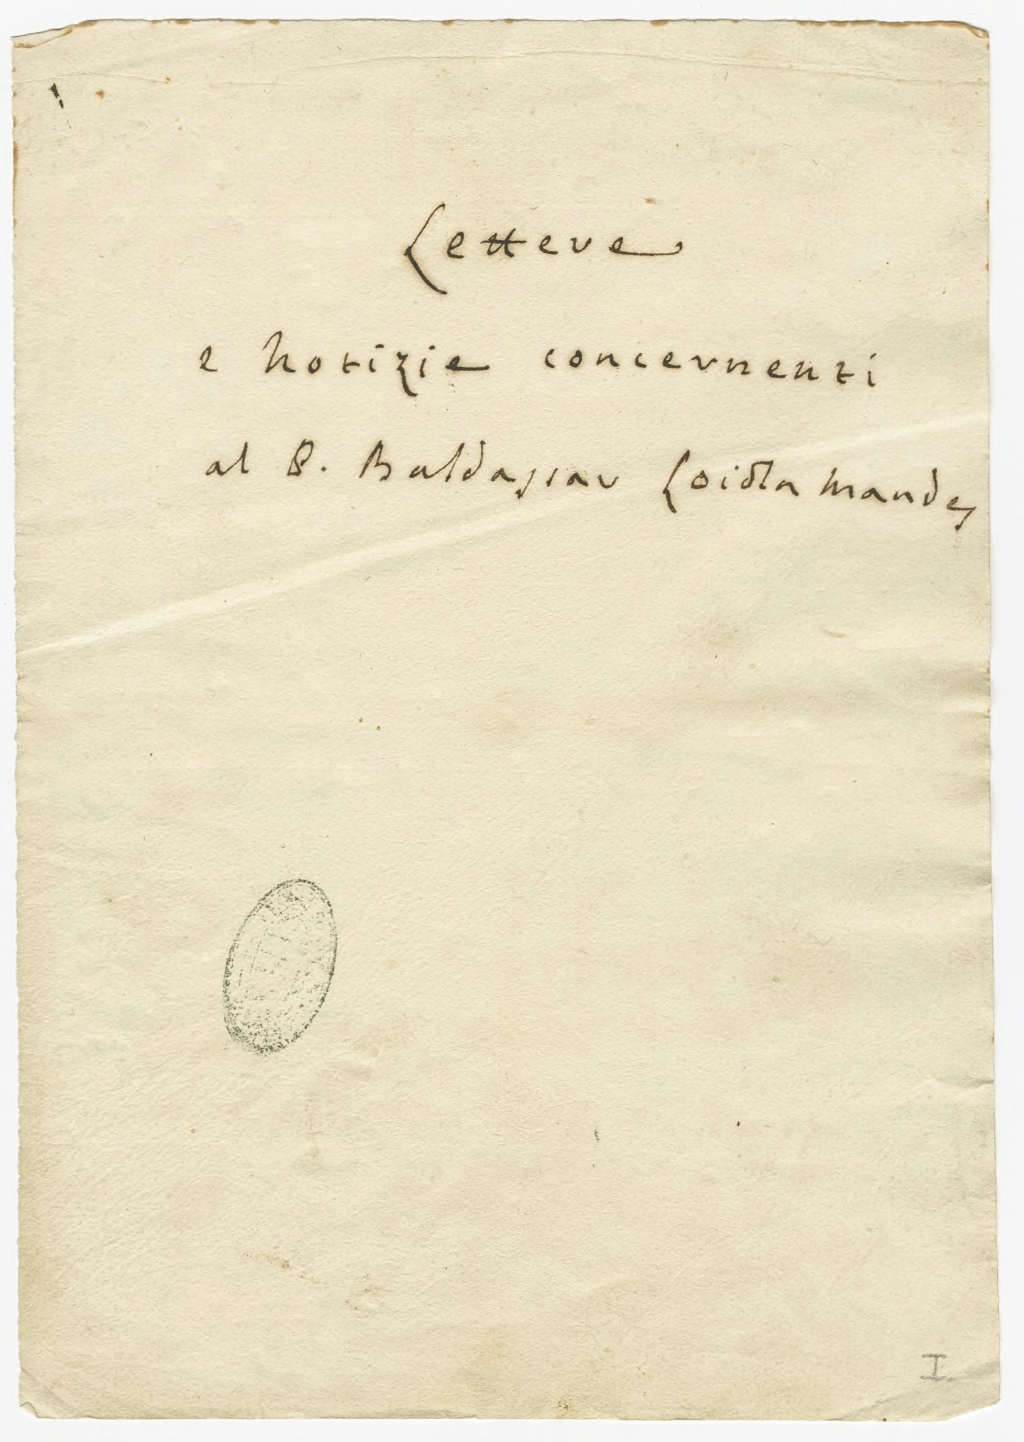 Lettere
e notizie concernenti
al P. Baldassar Loiola Mandes
I.